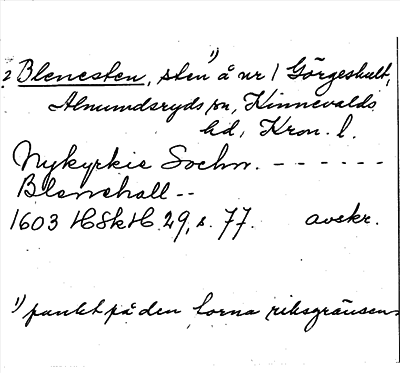 2 Blenesten, sten ¹⁾ å nr 1 Görgeshult,
Almundsryds sn, Kinnevalds
hd, Kron. l.
Nykyrkie Sochn. - - - - - -
Blenehall - -
1603 HSkH 29, s. 77. avskr.
¹⁾ punkt på den forna riksgränsen